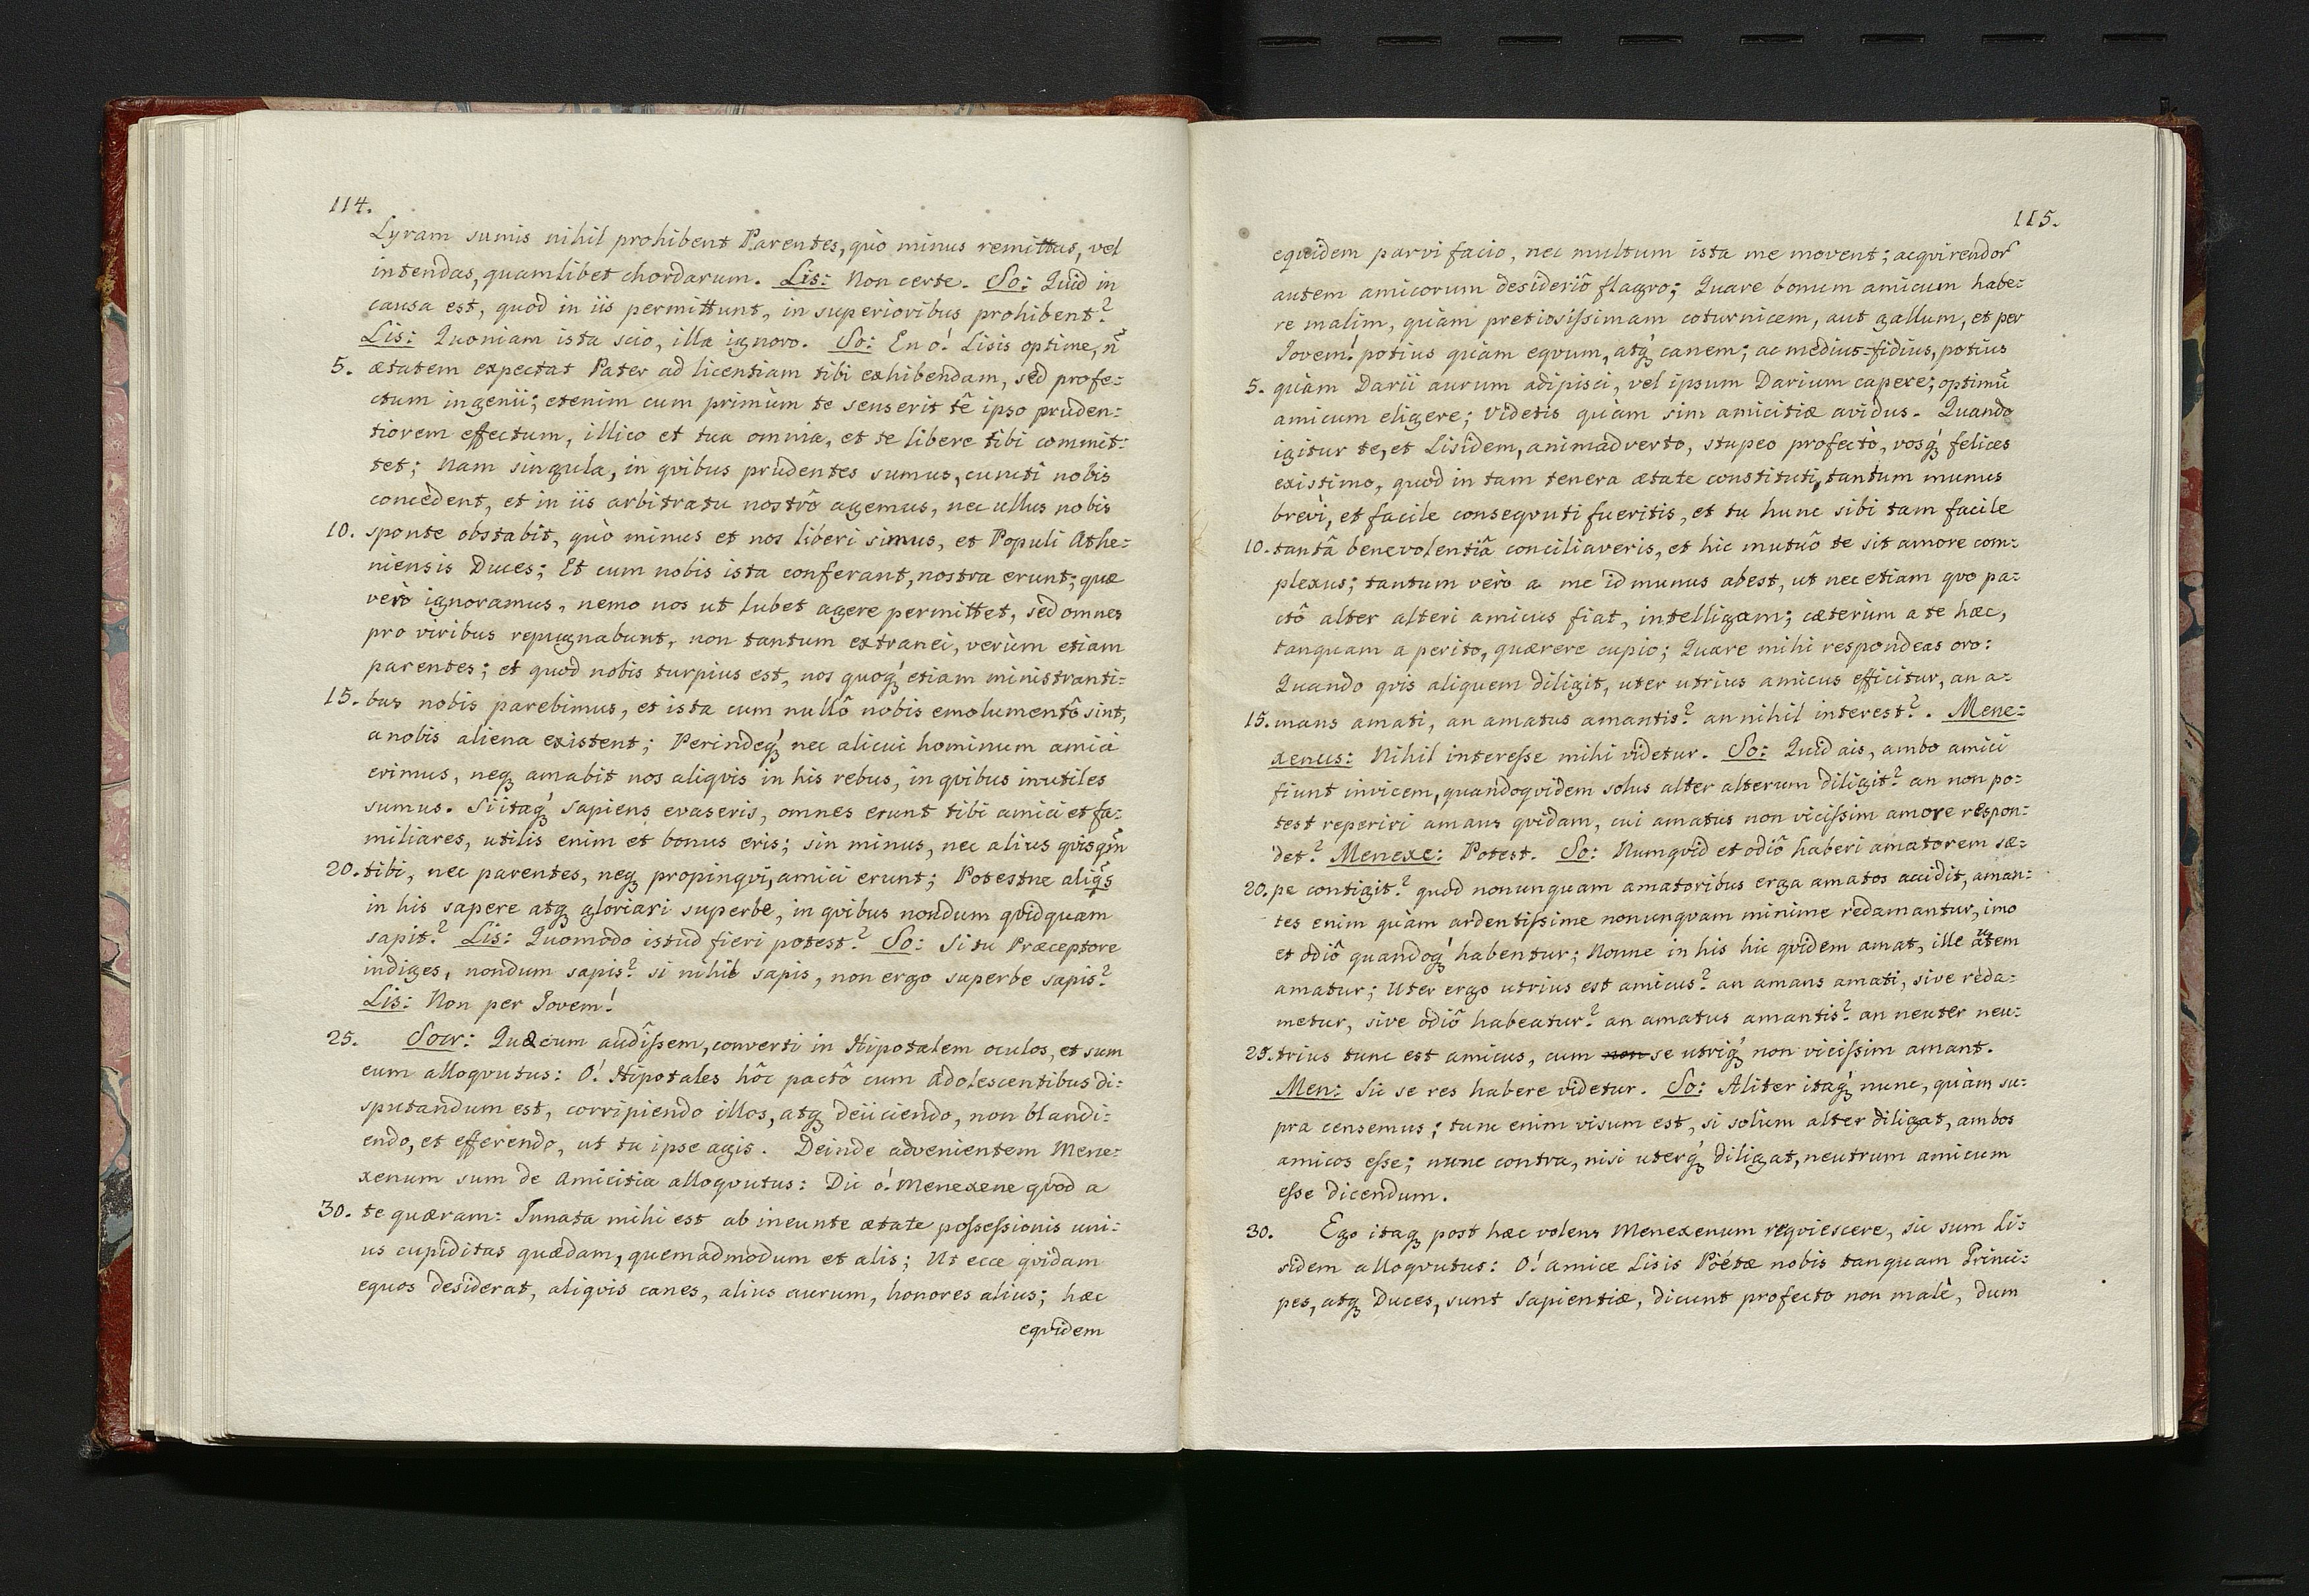 114.
Lyram sumis nihil prohibent Parentes, quò minus remittas, vel
intendas, quamlibet chordarum. Lis: Non certe. So: Quid in
causa est, quod in iis permittunt, in superioribus prohibent?
Lis: Quoniam ista scio, illa ignoro. So: En ò! Lisis optime, n̄
5. ætatem expectat Pater ad licentiam tibi exhibendam, sed profe=
ctum ingenii; etenim cum primùm te senserit tê ipso pruden=
tiorem effectum, illico et tua omnia, et se libere tibi commit=
tet; Nam singula, in qvibus prudentes sumus, cuncti nobis
concedent, et in iis arbitratu nostrô agemus, nec ullus nobis
10. sponte obstabit, quò minus et nos liberi simus, et Populi Athe=
niensis Duces; Et cum nobis ista conferant, nostra erunt; quæ
verò ignoramus, nemo nos ut lubet agere permittet, sed omnes
pro viribus repugnabunt, non tantum extranei, verùm etiam
parentes; et quod nobis turpius est, nos quoq́ꝫ etiam ministranti=
15. bus nobis parebimus, et ista cum nullô nobis emolumentô sint,
a nobis aliena existent; Perindeq́ꝫ nec alicui hominum amici
erimus, neqꝫ amabit nos aliqvis in his rebus, in qvibus inutiles
sumus. Si itaq́ꝫ sapiens evaseris, omnes erunt tibi amici et fa=
miliares, utilis enim et bonus eris; sin minus, nec alius qvisqm̃
20. tibi, nec parentes, neqꝫ propinqvi, amici erunt; Potestne aliq̃s
in his sapere atqꝫ gloriari superbe, in qvibus nondum qvidquam
sapit? Lis: Quomodo istud fieri potest? So: Si tu Præceptore
indiges, nondum sapis? si nihil sapis, non ergo superbe sapis?
Lis: Non per Jovem!
25. Socr: Quæ cum audîssem, converti in Hipotalem oculos, et sum
eum alloqvutus: O! Hipotales hôc pactô cum Adolescentibus di=
sputandum est, corripiendo illos, atqꝫ deiiciendo, non blandi=
endo, et efferendo, ut tu ipse agis. Deinde advenientem Mene=
xenum sum de Amicitia alloqvutus: Dic ò! Menexene qvod a
30. te quæram: Innata mihi est ab ineunte ætate possessionis uni=
us cupiditas quædam, quemadmodum et alis; Ut ecce qvidam
equos desiderat, aliqvis canes, alius aurum, honores alius; hæc
eqvidem
115.
eqvidem parvi facio, nec multum ista me movent; acqvirendor̃
autem amicorum desideriô flagro; Quare bonum amicum habe=
re malim, quàm pretiosissimam coturnicem, aut gallum, et per
Jovem! potius quàm eqvum, atq́ꝫ canem; ac medius=fidius, potius
5. quàm Darii aurum adipisci, vel ipsum Darium capere; optimū
amicum eligere; videtis quàm sim amicitiæ avidus. Quando
igitur te, et Lisidem, animadverto, stupeo profectò, vosq́ꝫ felices
existimo, quod in tam tenera ætate constituti, tantum munus
brevì, et facile conseqvuti fueritis, et tu hunc sibi tam facile
10. tantâ benevolentiâ conciliaveris, et hic mutuô te sit amore com=
plexus; tantum verò a me id munus abest, ut nec etiam qvo pa=
ctô alter alteri amicus fiat, intelligam; cæterùm a te hæc,
tanquam a perito, quærere cupio; Quare mihi respondeas oro:
Quando qvis aliquem diligit, uter utrius amicus efficitur, an a=
15. mans amati, an amatus amantis? an nihil interest?. Mene=
xenus: Nihil interesse mihi videtur. So: Quid ais, ambo amici
fiunt invicem, quandoqvidem solus alter alterum diligit? an non po=
test reperiri amans qvidam, cui amatus non vicissim amore respon=
det? Menexe: Potest. So: Numqvid et odiô haberi amatorem sæ=
20. pe contigit? quod nonunquam amatoribus erga amatos accidit, aman=
tes enim quàm ardentissime nonunqvam minime redamantur, imo
et odiô quandoq́ꝫ habentur; Nonne in his hic qvidem amat, ille ãtem
amatur; Uter ergo utrius est amicus? an amans amati, sive reda=
metur, sive odiô habeatur? an amatus amantis? an neuter neu=
25. trius tunc est amicus, cum non se utriq́ꝫ non vicissim amant.
Men: Sic se res habere videtur. So: Aliter itaq́ꝫ nunc, quàm su=
pra censemus; tunc enim visum est, si solùm alter diligat, ambos
amicos esse; nunc contra, nisi uterq́ꝫ diligat, neutrum amicum
esse dicendum.
30. Ego itaqꝫ post hæc volens Menexenum reqviescere, sic sum Li=
sidem alloqvutus: O! amice Lisis Poëtæ nobis tanquam Princi=
pes, atqꝫ Duces, sunt Sapientiæ, dicunt profecto non malè, dum